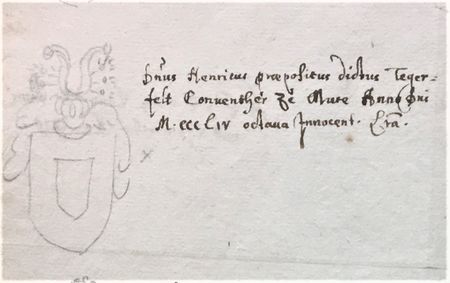 Dn̄us Henricus præpositus dictus Teger=
felt Conventher Zè Mure Anno Dni
M.CCCLIV octava Innocent.